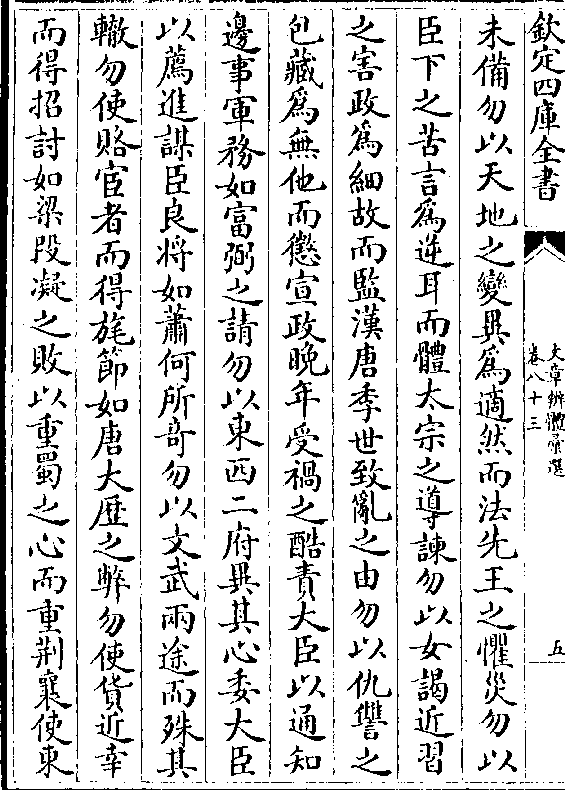 欽定四庫全書
文章辨體彙選
卷八十三
五
未備勿以天地之變異爲適然而法先王之懼災勿以
臣下之苦言爲逆耳而體太宗之導諫勿以女謁近習
之害政爲細故而監漢唐季世致亂之由勿以仇讐之
包藏爲無他而懲宣政晚年受禍之酷責大臣以通知
邊事軍務如富弼之請勿以東西二府異其心委大臣
以薦進謀臣良將如蕭何所奇勿以文武兩途而殊其
轍勿使賂宦者而得旄節如唐大歷之弊勿使貨近幸
而得招討如梁段凝之敗以重蜀之心而重荆襄使東